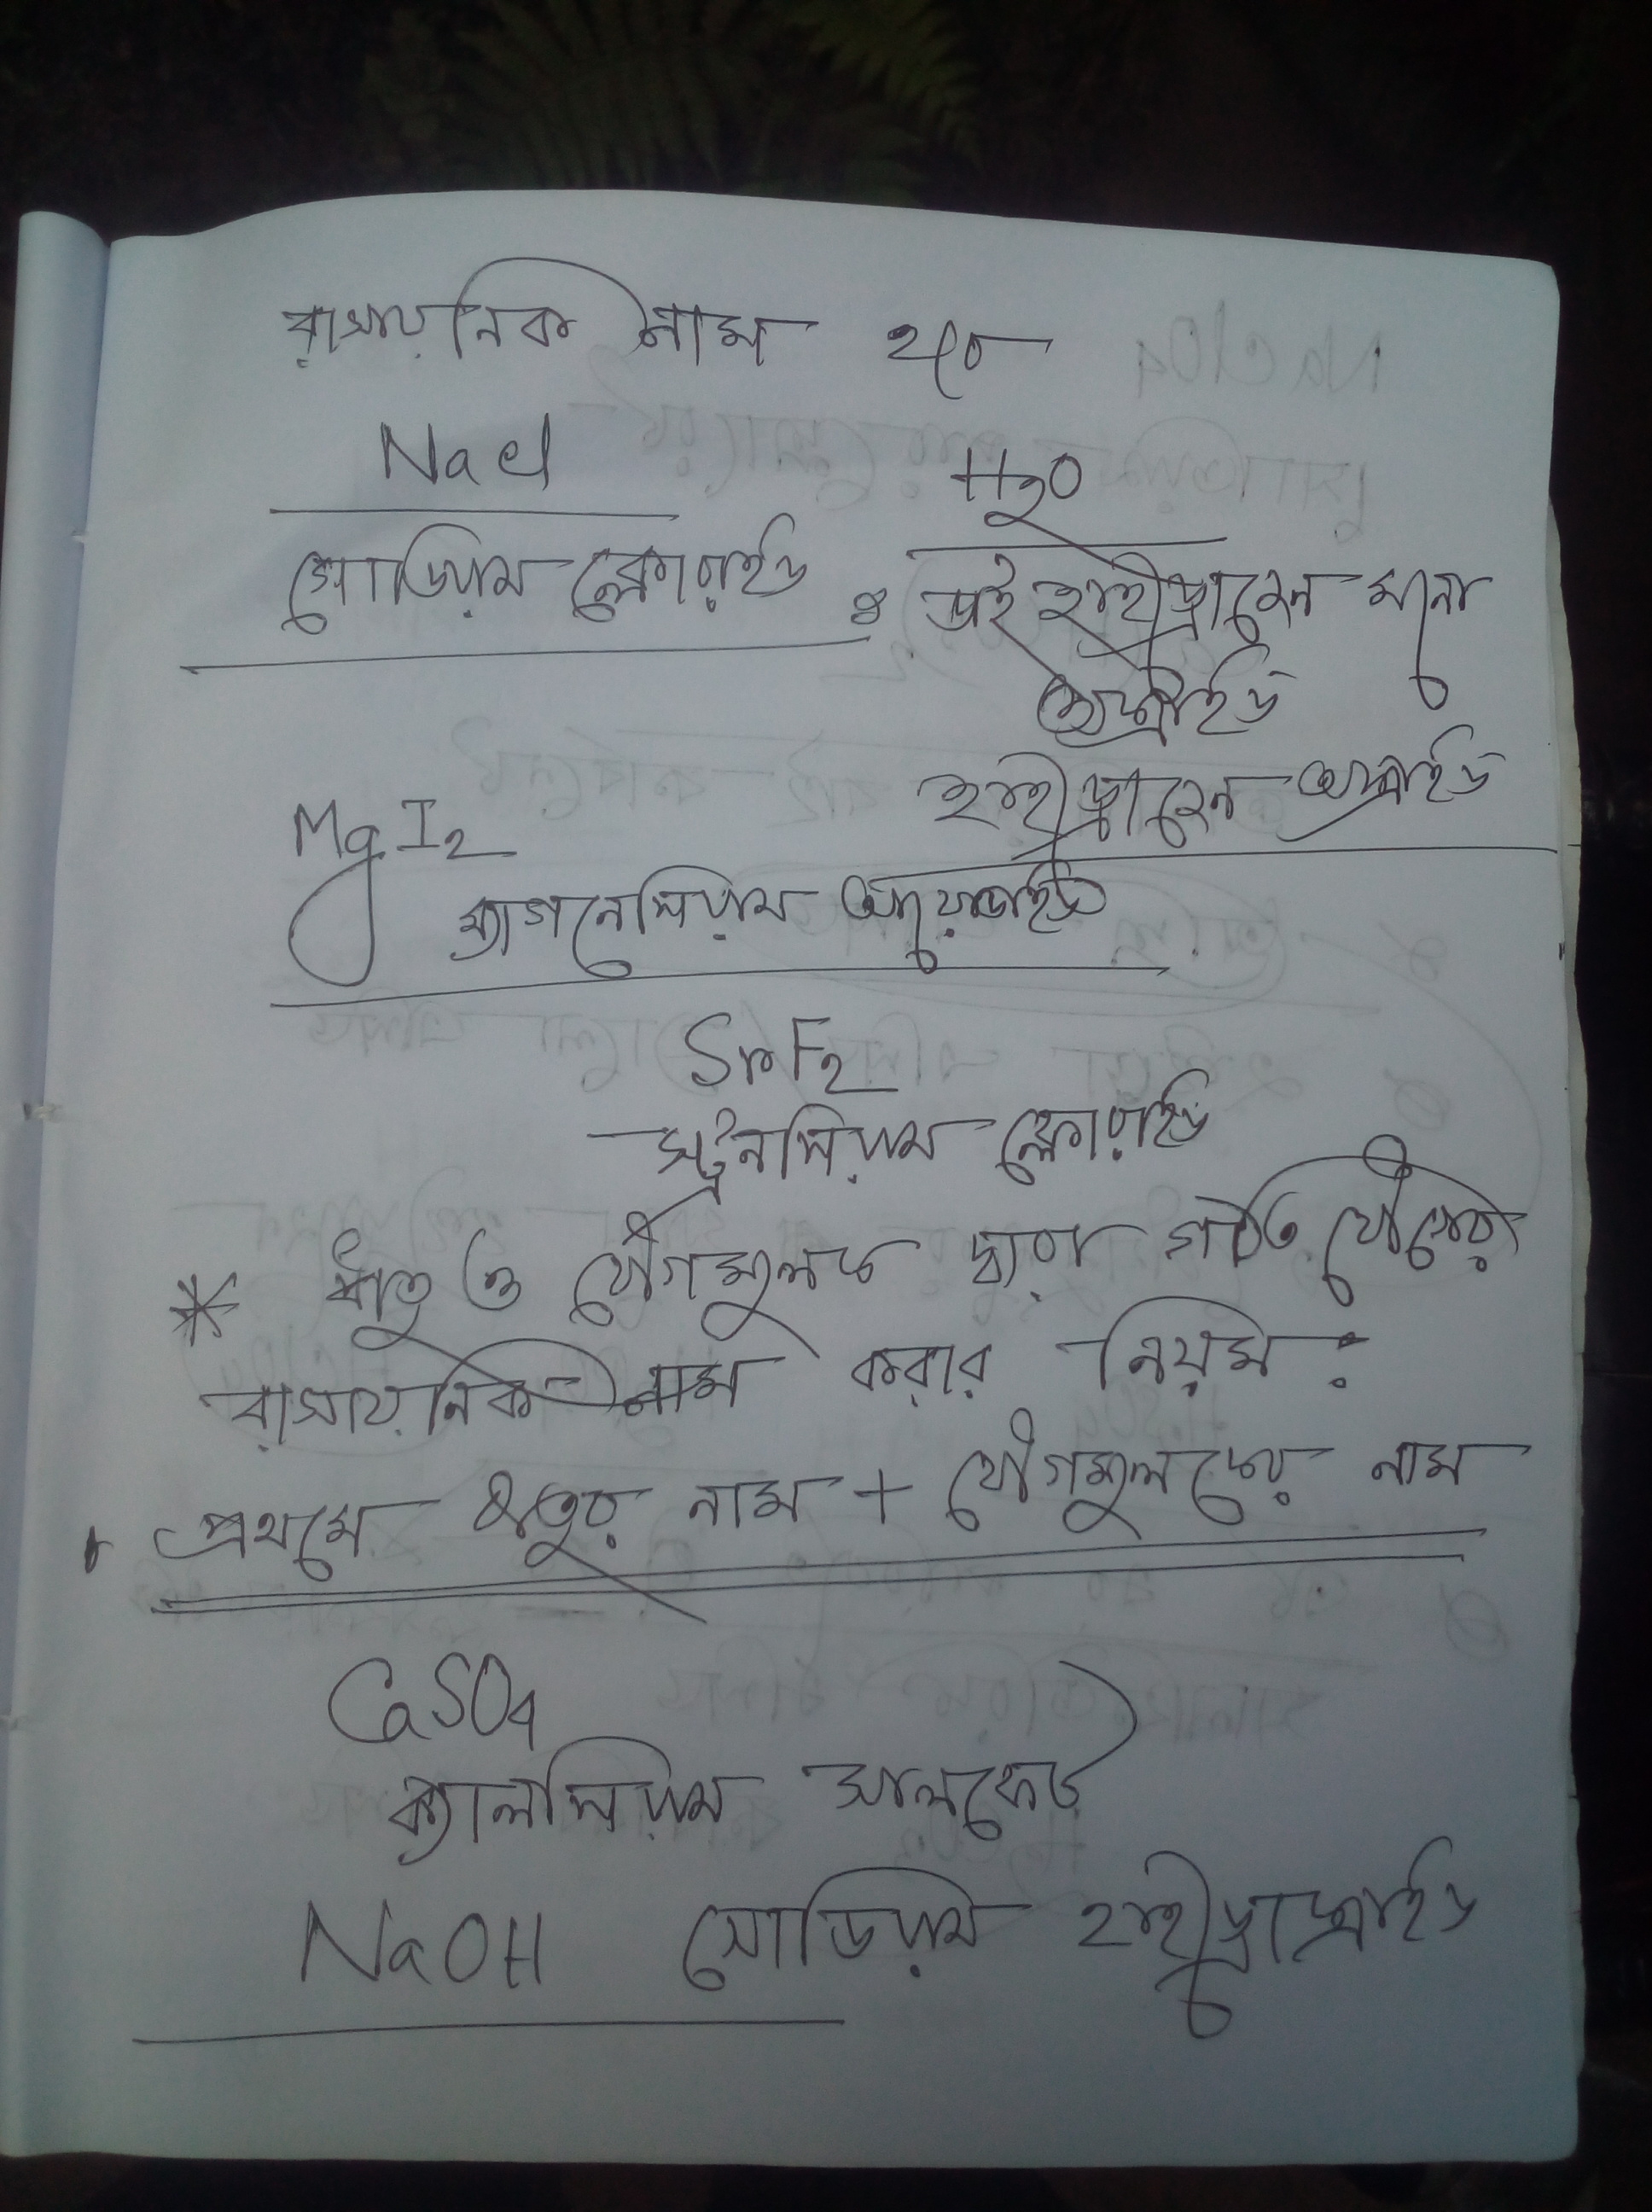 রাসায়নিক নাম হবে
NaCl
H2O
সোডিয়াম ক্লোরাইড
: ডাই হাইড্রোজেন মনো
অক্সাইড
হাইড্রোজেন অক্সাইড
MgI2
ম্যাগনেসিয়াম আয়োডাইড
SrF2
স্ট্রনসিয়াম ফ্লোরাইড
* ধাতু ও যৌগমূলক দ্বারা গঠিত যৌগের
রাসায়নিক নাম করার নিয়ম :
প্রথমে ধাতুর নাম + যৌগমূলকের নাম
CaSO4
ক্যালসিয়াম সালফেট
NaOH সোডিয়াম হাইড্রোক্সাইড